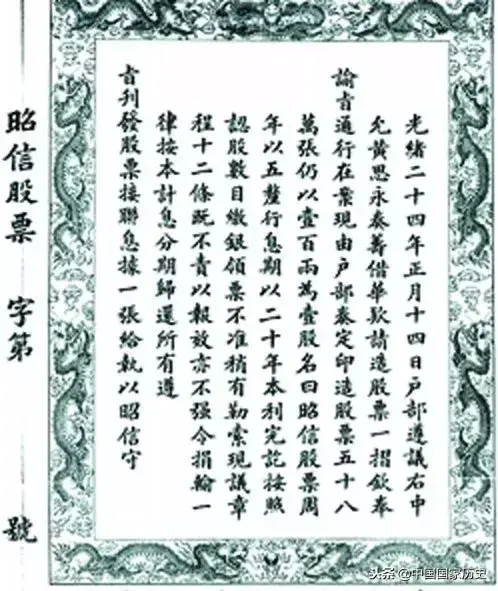 光緒二十四年正月十四日戶部遵議右中
允黃思永奏籌借華款請造股票一摺欽奉
諭旨通行在案現由戶部奏定印造股票五十八
萬張仍以壹百兩為壹股名曰昭信股票周
年以五釐行息期以二十年本利完訖按照
認股數目繳銀領票不准稍有勒索現議章
程十二條既不責以報效亦不强令捐輸一
律按本計息分期歸還所有遵
旨刊發股票接聯息據一張給執以昭信守
昭信股票 字第 號
头条@中国国家历史